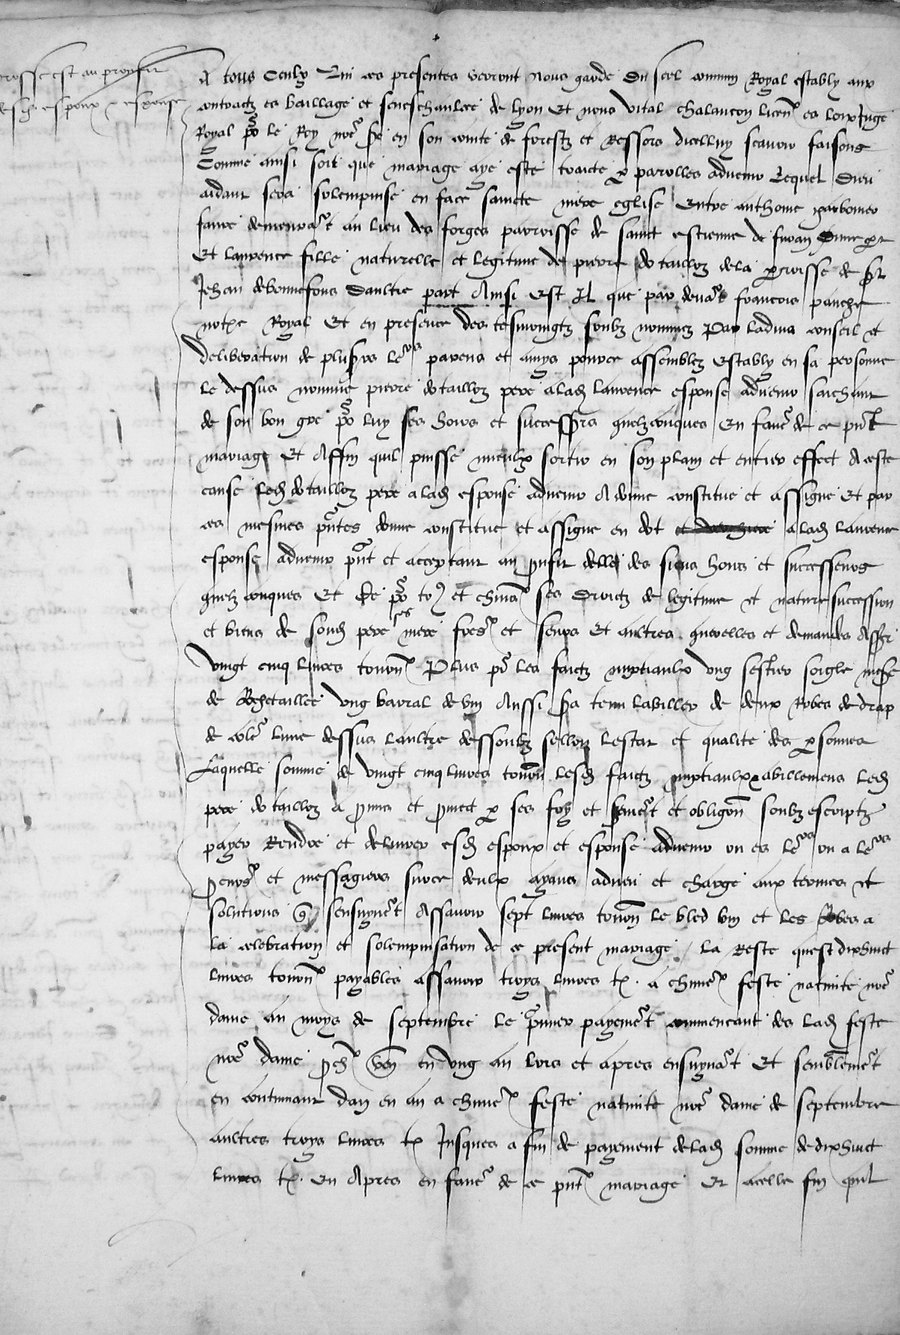 grosse est au proffit
desd espoux espouse
A tous Ceulx Qui ces presentes verront nous garde Du scel commun Royal estably aux
contractz es bailliage et seneschaulcee de lyon Et nous vital chalancon licen es loix Juge
Royal po le Roy nre Sr en son conte de forestz et Ressors dicelluy scavoir faisons
Comme ainsi soit que mariage aye este traicte p parolles advenir Lequel Dieu
aidant sera solempnise en face saincte mere eglise Entre anthoine
faure demeurat au lieu des forges parroisse de sainct estienne de furan Dune prt
Et laurence fille naturelle et legitime de pierre dotaillon de la perroisse de St
Jehan de bonnefons Daultre part Ainsi Est Il que par devat francois panche
notre Royal Et en presence des tesmoingtz soubz nommez Par ladius conseil et
deliberation de plusrs leurs parens et amys pource assemblez Estably en sa personne
le dessus nomme pierre dotaillon pere a lad laurence espouse advenir saichant
de son bon gre po luy ses hoirs et successrs quelzconques En faver de ce pnt
mariage Et Affin quil puisse mieulx sortir en son plain et entier effect A ceste
cause led dotaillon pere a lad espouse advenir A donne constitue et assigne Et par
ces mesmes pntes donne constitue et assigne en dot a lad laurence
espouse advenir pnt et acceptant au proufit delle des siens hoirs et successeurs
quelzconques Et Ce po to et chun ses droictz de legitime et nature succession
et biens de sond pere mere freres et seurs Et aultres querelles et demandes Assr
Vingt cinq livres tournn Plus po les faictz nuptiaulx ung sestier soigle mesure
de Rochetaillee ung barral de vin Aussi sra tenu labiller de deux Robes de drap
de colr Lune dessus laultre dessoubz sellon lestat et qualite des psonnes
Laquelle somme de vingt cinq livres tournn lesd faictz nuptiaulx abillemens led
pere dotaillon a pmis et pmect p ses foy et serment et obligon soubz escriptz
payer Rendre et delivrer esd espoux et espouse advenir ou es leurs ou a leurs
procurs et messagiers surce deulx ayans adveu et charge aux termes et
solutions q sensuyvet Assavoir sept livres tournn le bled vin et les Robes a
la celebration et solempnisation de ce present mariage / La Reste quest dixhuict
livres tournn payables assavoir troys livres tz. a chune feste nativite nre
dame au moys de septembre le pmier payemet commencant des lad feste
nre dame proch ven en ung an lors et apres ensuyvat Et semblemet
en continuant dan en an a chune feste nativite nre dame de septembre
aultres troys livres tz Jusques a fin de payement de lad somme de dixhuict
livres tz. En Apres en faver de ce pnt mariage Et acelle fin quil